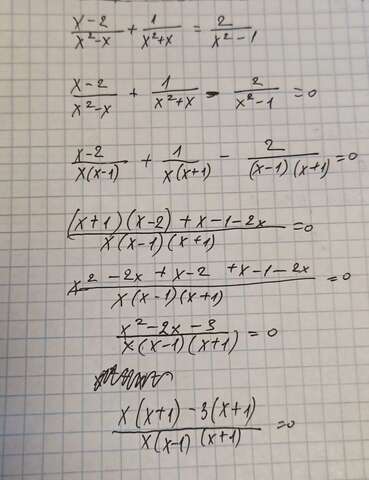 (x-2)/(x²-x) + 1/(x²+x) = 2/(x²-1)
(x-2)/(x²-x) + 1/(x²+x) - 2/(x²-1) = 0
(x-2)/(x(x-1)) + 1/(x(x+1)) - 2/((x-1)(x+1)) = 0
((x+1)(x-2) + x-1-2x)/(x(x-1)(x+1)) = 0
(x²-2x+x-2 +x-1-2x)/(x(x-1)(x+1)) = 0
(x²-2x-3)/(x(x-1)(x+1)) = 0
(x(x+1)-3(x+1))/(x(x-1)(x+1)) = 0